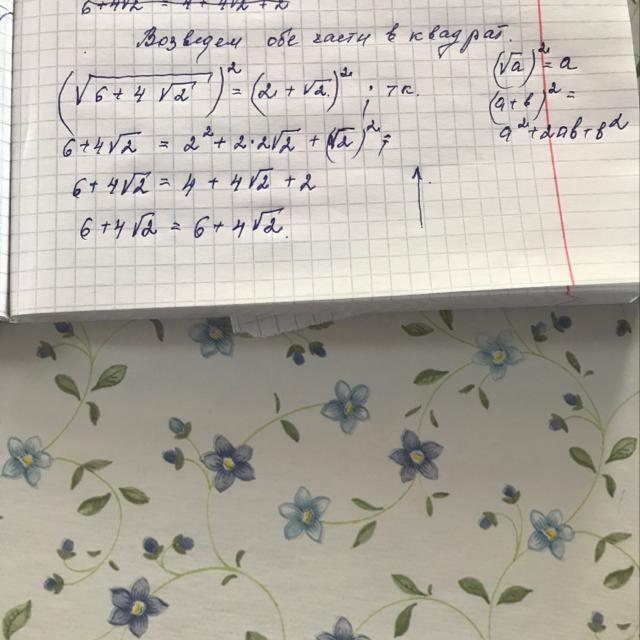 6+4√2 = 4+4√2+2
Возведем обе части в квадрат.
(√(6+4√2))² = (2+√2)², т.к.
(√a)² = a
(a+b)² =
a²+2ab+b²
6+4√2 = 2²+2·2√2+(√2)²;
6+4√2 = 4+4√2+2
6+4√2 = 6+4√2.